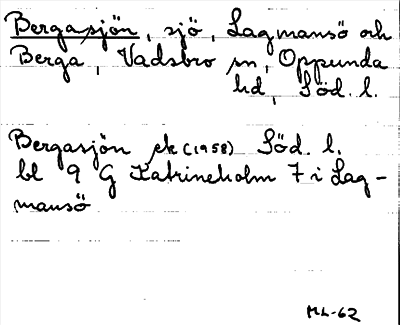 Bergasjön, sjö, Lagmansö och
Berga, Vadsbro sn, Oppunda
hd, Söd. l.
Bergasjön ek (1958) Söd. l.
bl 9 G Katrineholm 7 i Lag-
mansö
ML-62